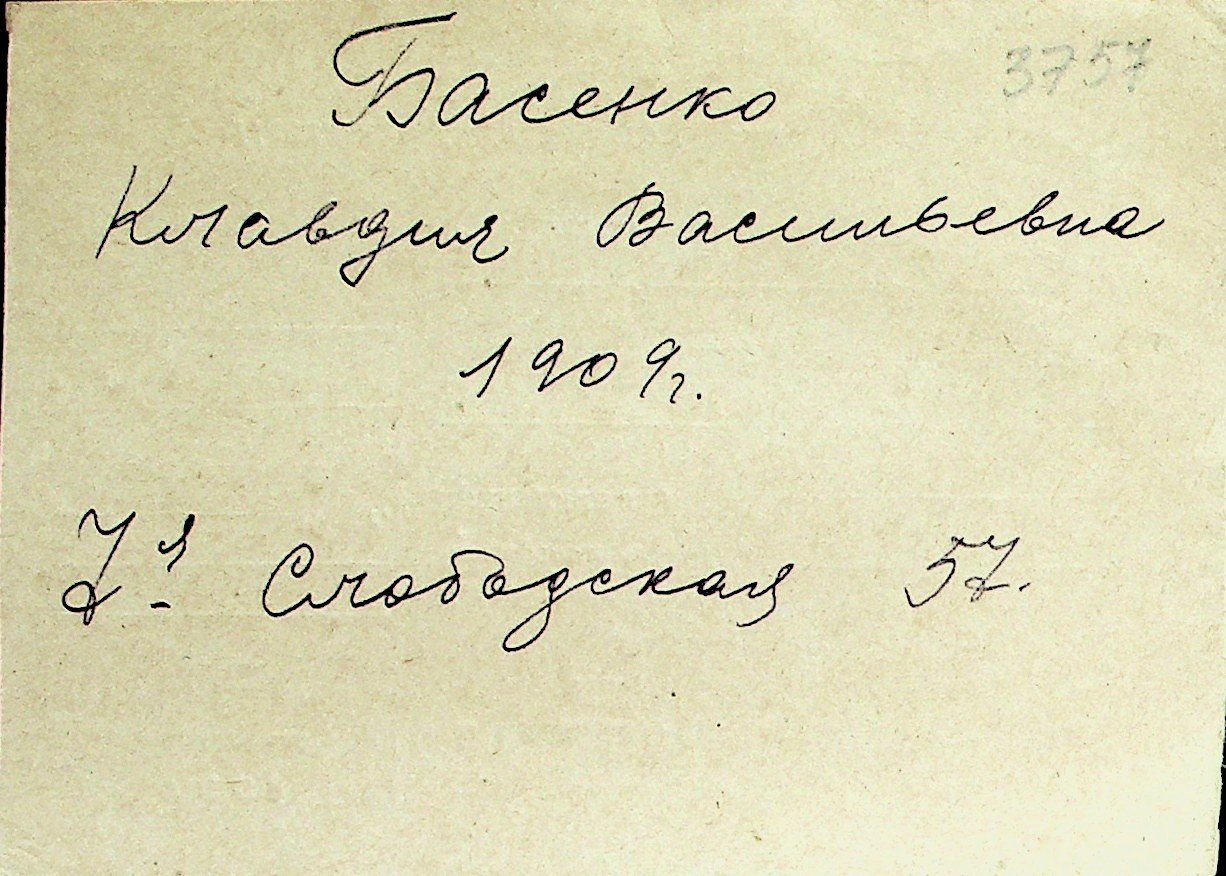 3757
Басенко
Клавдия Васильевна
1909г.
7я Слободская 57.